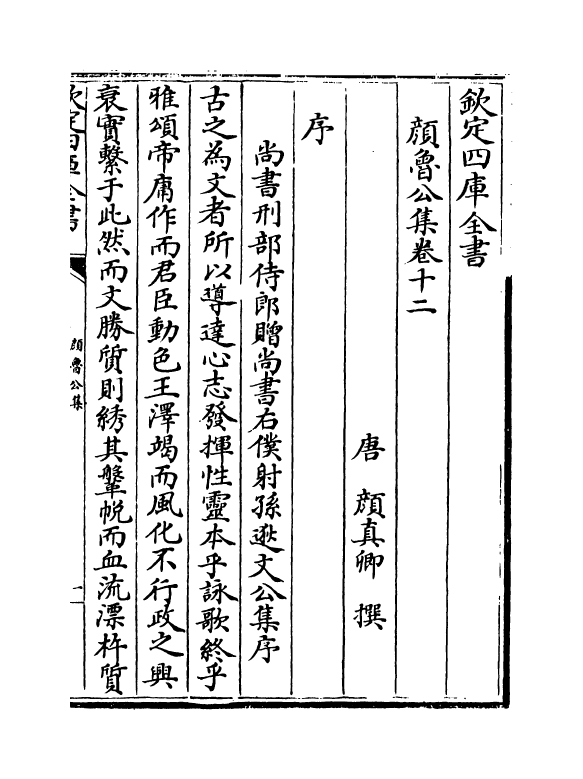 欽定四庫全書
顔魯公集卷十二
唐 顔真卿 撰
序
尚書刑部侍郎贈尚書右僕射孫逖文公集序
古之為文者所以導達心志發揮性靈本乎詠歌終乎
雅頌帝庸作而君臣動色王澤竭而風化不行政之興
衰實繫于此然而文勝質則綉其鞶帨而血流漂杵質
欽定四庫全書
顔魯公集
一